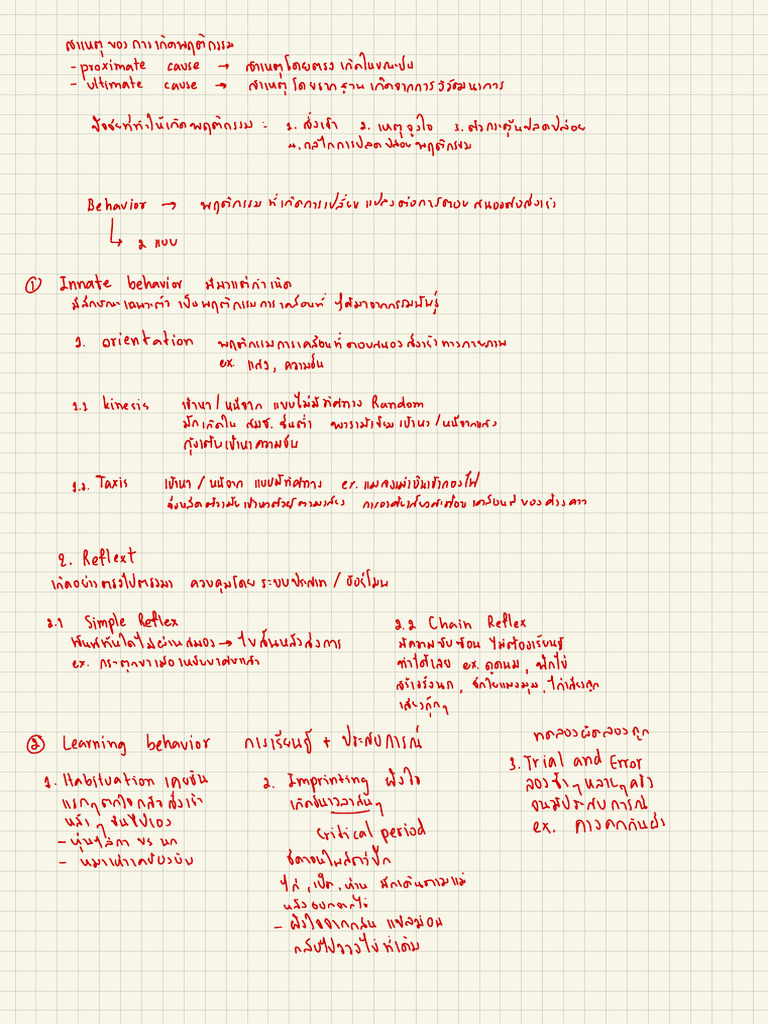 สาเหตุของการเกิดพฤติกรรม
- proximate cause → สาเหตุโดยตรง เกิดในขณะนั้น
- ultimate cause → สาเหตุโดยรากฐาน เกิดจากการวิวัฒนาการ
ปัจจัยที่ทำให้เกิดพฤติกรรม : 1. สิ่งเร้า 2. เหตุจูงใจ 3. ตัวกระตุ้นปลดปล่อย
4. กลไกการปลดปล่อยพฤติกรรม
Behavior → พฤติกรรมที่เกิดการเปลี่ยนแปลงต่อการตอบสนองต่อสิ่งเร้า
2 แบบ
① Innate behavior มีมาแต่กำเนิด
มีลักษณะเฉพาะตัว เป็นพฤติกรรมการเคลื่อนที่ ได้มาจากกรรมพันธุ์
1. orientation พฤติกรรมการเคลื่อนที่ตอบสนองสิ่งเร้าทางกายภาพ
ex. แสง, ความชื้น
1.1 kinesis เข้าหา / หนีจาก แบบไม่มีทิศทาง Random
มักเกิดใน สมช. ชั้นต่ำ พารามีเซียมเข้าหา / หนีจากแสง
กุ้งเต้นเข้าหาความชื้น
1.2. Taxis เข้าหา / หนีจาก แบบมีทิศทาง ex. แมลงเม่าบินเข้ากองไฟ
จิ้งหรีดตัวเมียเข้าหาตัวผู้ตามเสียง การอาศัยเสียงสะท้อน เคลื่อนที่ของค้างคาว
2. Reflext
เกิดอย่างตรงไปตรงมา ควบคุมโดย ระบบประสาท / ฮอร์โมน
2.1 Simple Reflex
เกิดทันทีทันใดไม่ผ่านสมอง → ไขสันหลังสั่งการ
ex. กระตุกขาเมื่อเหยียบเศษแก้ว
2.2 Chain Reflex
มีความซับซ้อน ไม่ต้องเรียนรู้
ทำได้เลย ex. ดูดนม, ฟักไข่
สร้างรังนก, ชักใยแมงมุม, ไก่เลี้ยงลูก
เสียงกุ๊กๆ
② Learning behavior การเรียนรู้ + ประสบการณ์
1. Habituation เคยชิน
แรกๆตกใจ กลัว สิ่งเร้า
หลังๆ ชินไปเอง
- หุ่นไล่กา vs นก
- หมาเห่าเครื่องบิน
2. Imprinting ฝังใจ
เกิดในเวลาสั้นๆ
Critical period
ชัดเจนในสัตว์ปีก
ไก่, เป็ด, ห่าน มักเดินตามแม่
หลังออกจากไข่
- ฝังใจจากกลิ่น แซลมอน
กลับไปวางไข่ที่เดิม
ทดลองผิดลองถูก
3. Trial and Error
ลองซ้ำๆ หลายๆครั้ง
จนมีประสบการณ์
ex. คางคกกินผึ้ง